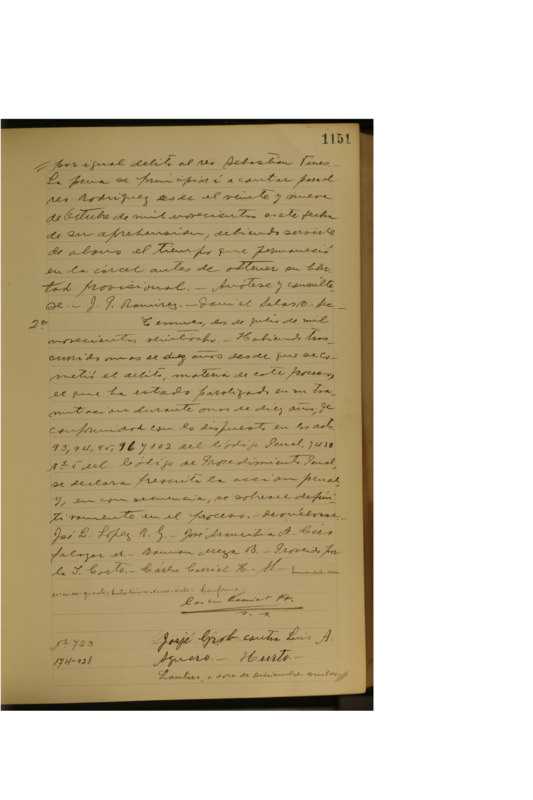 1151
por igual delito al reo Sebastian
La pena se principiará a contar para el
reo Rodriguez desde el veinte y nueve
de Octubre de mil novecientos siete fecha
de su aprehension, debiendo servirle
de abono el tiempo que permaneció
en la cárcel antes de obtener su liber
tad provisional. — Anótese y consúlte
se. — J. P. Ramirez. — Daniel Salas O. Se —
2º Temuco, dos de julio de mil
novecientos veintiocho. — Habiendo tras
currido mas de diez años desde que se co-
metió el delito, materia de este proceso,
el que ha estado paralizado en su tra
mitacion durante mas de diez años, de
conformidad con lo dispuesto en los arts.
93, 94, 95, 96 y 102 del Código Penal, y
Nº 5 del Código de Procedimiento Penal,
se declara prescrita la accion penal,
y, en consecuencia, se sobresee defini
tivamente en el proceso. — Devuélvase. —
José L. Lopez A. G. — José Arancibia A. —
Salazar M. — Meza B. — Proveido por
la I. Corte. — Cárlos
Nº 723 Jorje Grob contra Luis A.
174-928 Agüero. — Hurto —
Lautaro, a de diciembre